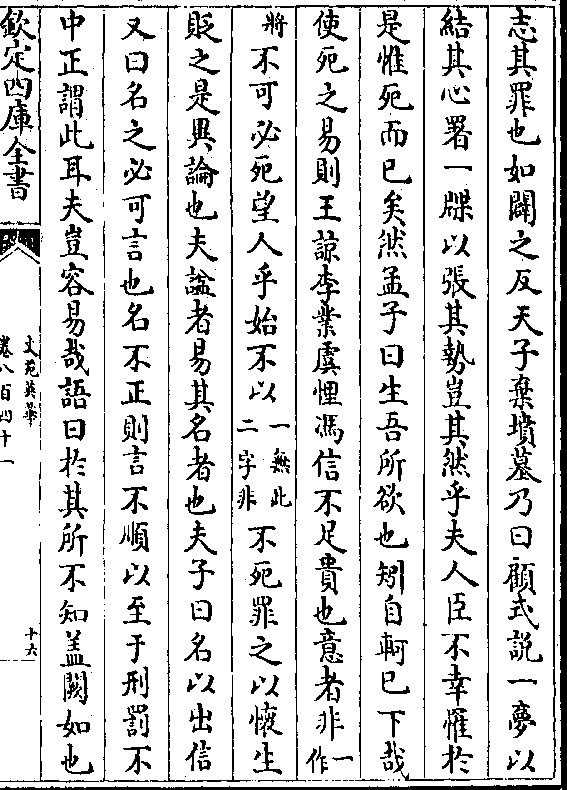 志其罪也如闢之反天子棄墳墓乃曰顧式説一夢以
結其心署一牒以張其勢豈其然乎夫人臣不幸罹於
是惟死而已矣然孟子曰生吾所欲也矧自軻已下哉
使死之易則王諒李業虞悝馮信不足貴也意者非一作
將不可必死望人乎始不以一無此二字非不死罪之以懐生
貶之是異論也夫諡者易其名者也夫子曰名以出信
又曰名之必可言也名不正則言不順以至于刑罰不
中正謂此耳夫豈容易哉語曰於其所不知蓋闕如也
欽定四庫全書
文苑英華
卷八百四十一
十六